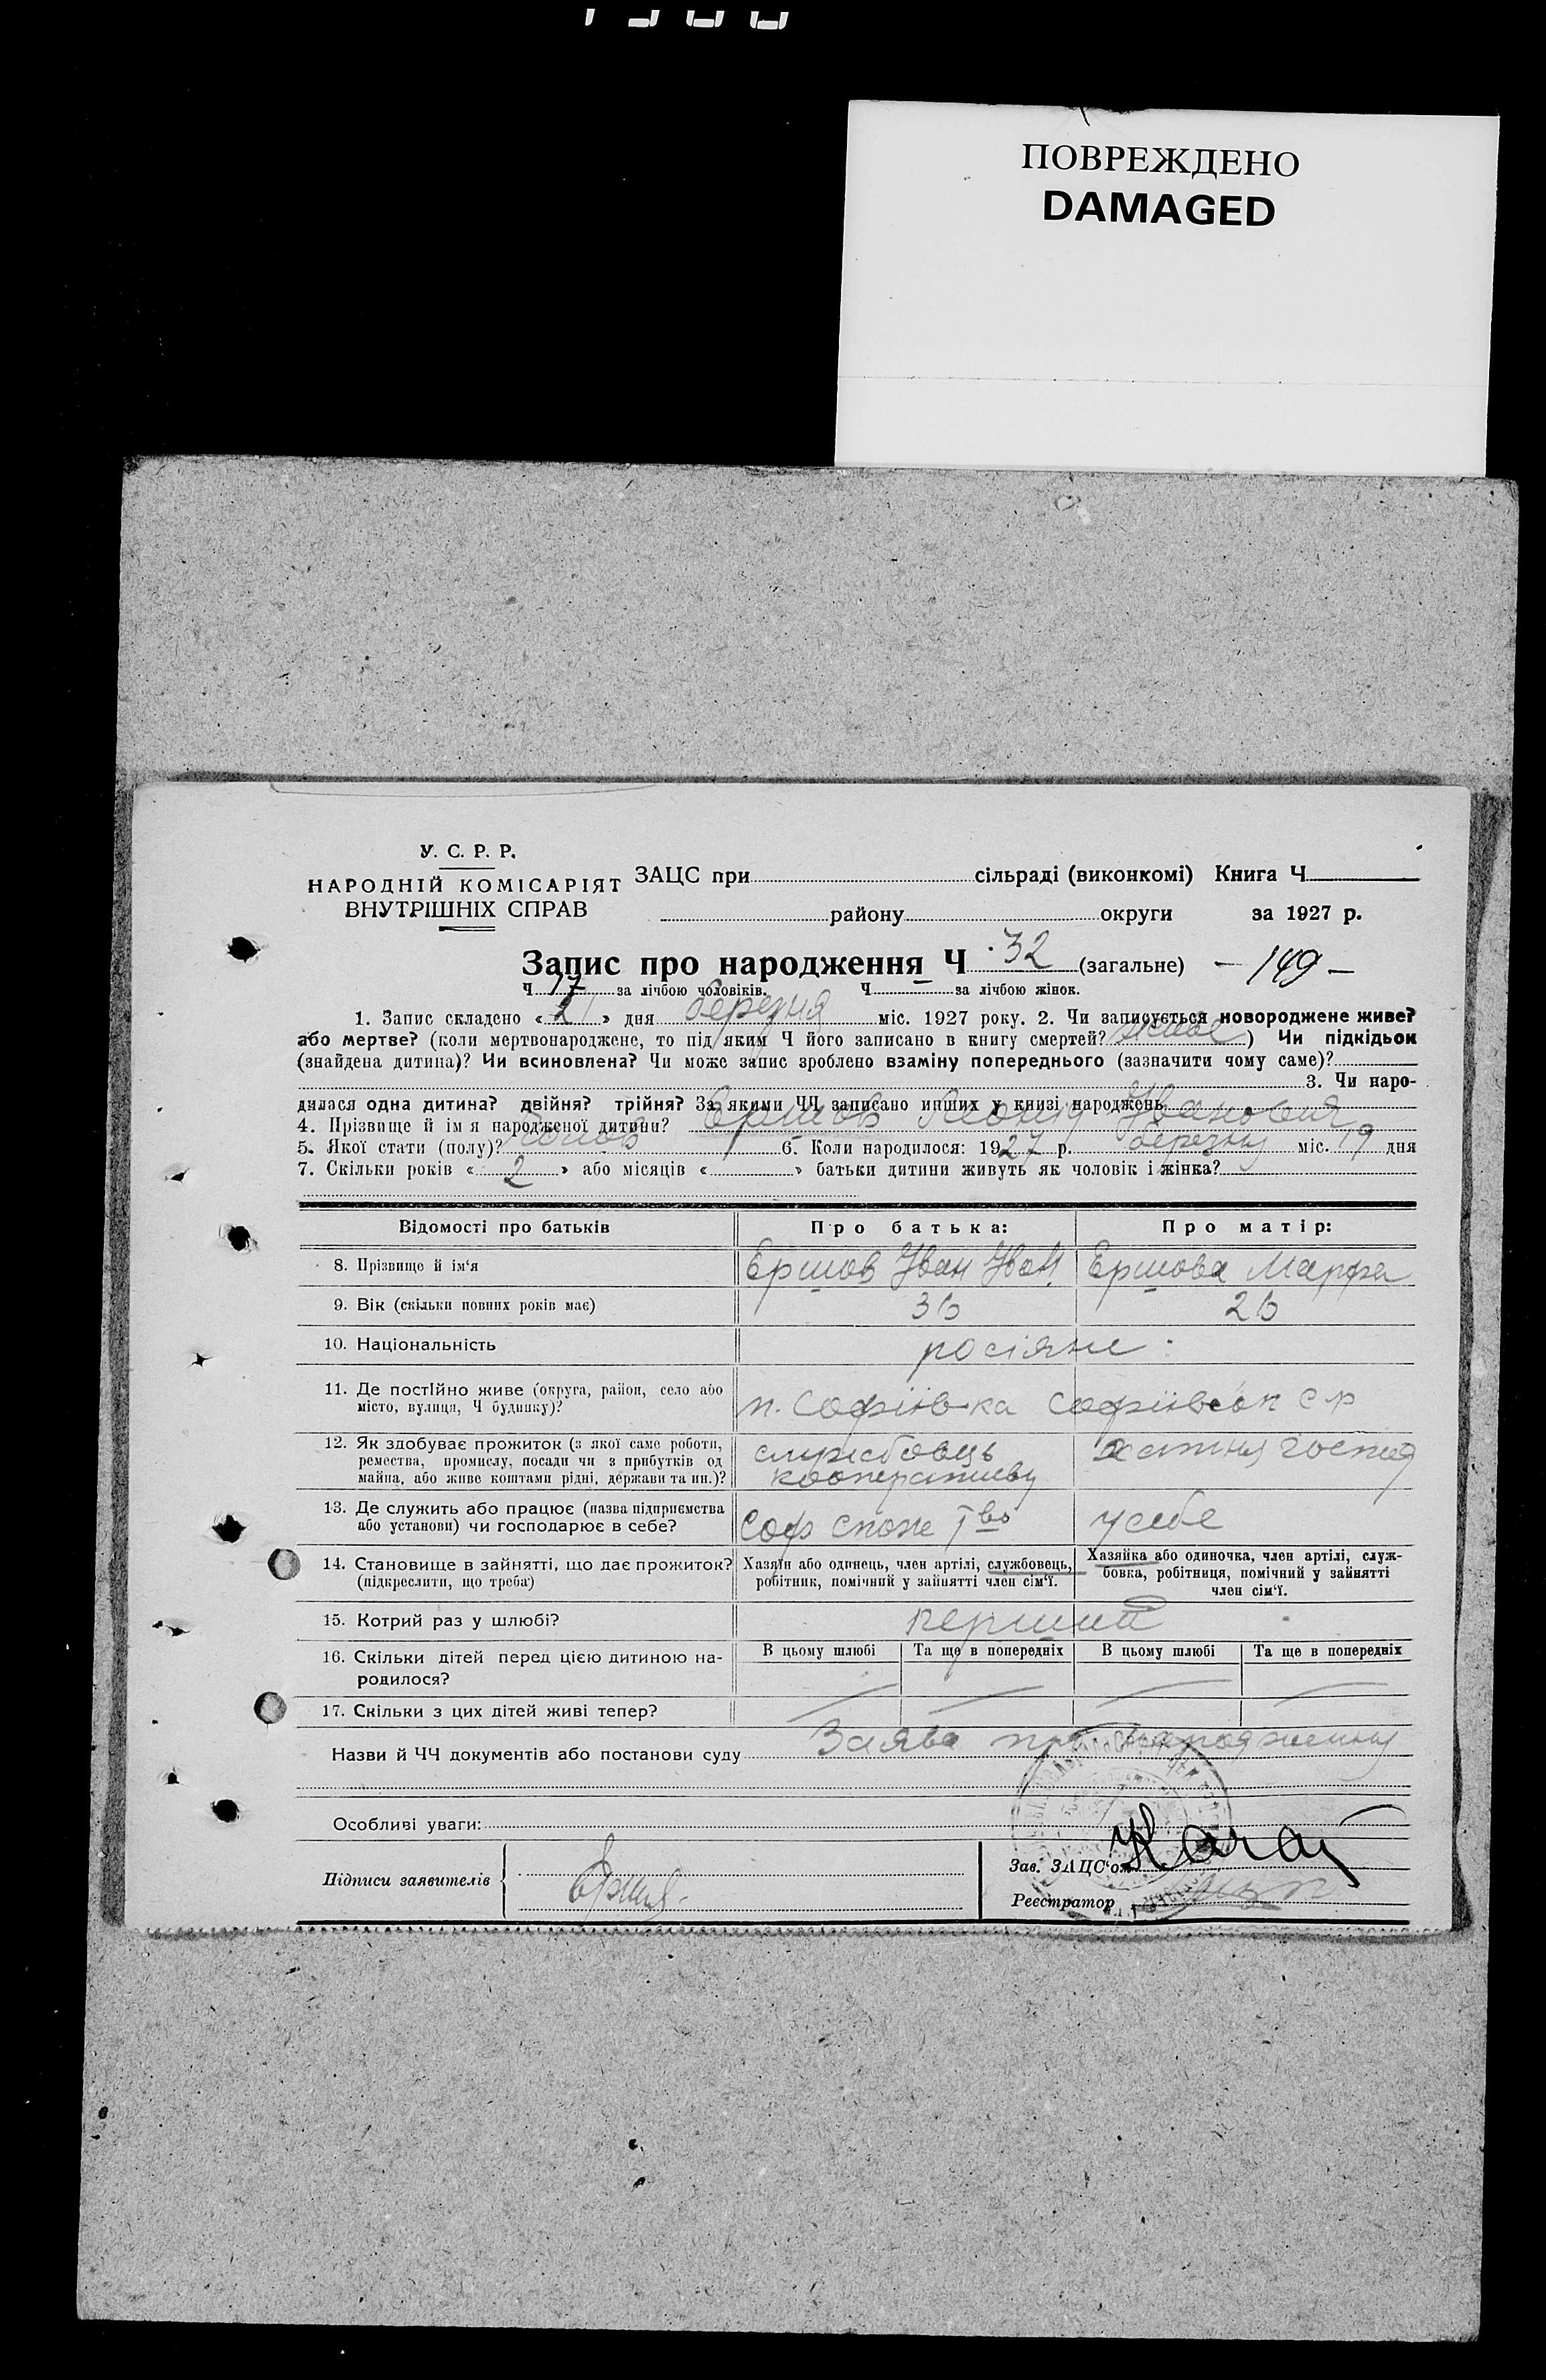 ПОВРЕЖДЕНО
DAMAGED
У. С. Р. Р.
НАРОДНІЙ КОМІСАРІЯТ
ВНУТРІШНІХ СПРАВ
ЗАЦС при сільраді (виконкомі) Книга Ч
району округи за 1927 р.
Запис про народження Ч 32 (загальне) – 149 –
Ч 17 за лічбою чоловіків. Ч за лічбою жінок.
1. Запис складено « 21 » дня березня міс. 1927 року. 2. Чи записується новороджене живе?
або мертве? (коли мертвонароджене, то під яким Ч його записано в книгу смертей? живе ) Чи підкідьок
(знайдена дитина)? Чи всиновлена? Чи може запис зроблено взаміну попереднього (зазначити чому саме)?
3. Чи наро-
дилася одна дитина? двійня? трійня? За якими ЧЧ записано инших у книзі народжень
4. Прізвище й ім я народженої дитини? Ершов Леонід Іванович
5. Якої стати (полу)? 6. Коли народилося: 1927 р. березня міс. 19 дня
7. Скільки років « 2 » або місяців « » батьки дитини живуть як чоловік і жінка?
Відомості про батьків Про батька: Про матір:
8. Прізвище й ім‘я Ершов Іван Іван Ершова Марфа
9. Вік (скільки повних років має) 36 26
10. Національність росіяне
11. Де постійно живе (округа, район, село або
місто, вулиця, Ч будинку)? п. Софіївка Софіївськ с р
12. Як здобуває прожиток (з якої саме роботи,
ремества, промислу, посади чи з прибутків од
майна, або живе коштами рідні, держави та ин.)?
службовець
кооперативу
хатня господ
13. Де служить або працює (назва підприємства
або установи) чи господарює в себе?
Соф спож Т-во
у себе
14. Становище в зайнятті, що дає прожиток?
(підкреслити, що треба)
Хазяїн або одинець, член артілі, службовець,
робітник, помічний у зайнятті член сім‘ї.
Хазяйка або одиночка, член артілі, служ-
бовка, робітниця, помічний у зайнятті
член сім‘ї.
15. Котрий раз у шлюбі? перший
16. Скільки дітей перед цією дитиною на-
родилося?
В цьому шлюбі Та ще в попередніх В цьому шлюбі Та ще в попередніх
17. Скільки з цих дітей живі тепер?
Назви й ЧЧ документів або постанови суду Заява про народження
Особливі уваги:
Підписи заявителів
Зав. ЗАЦС‘ом
Реєстратор